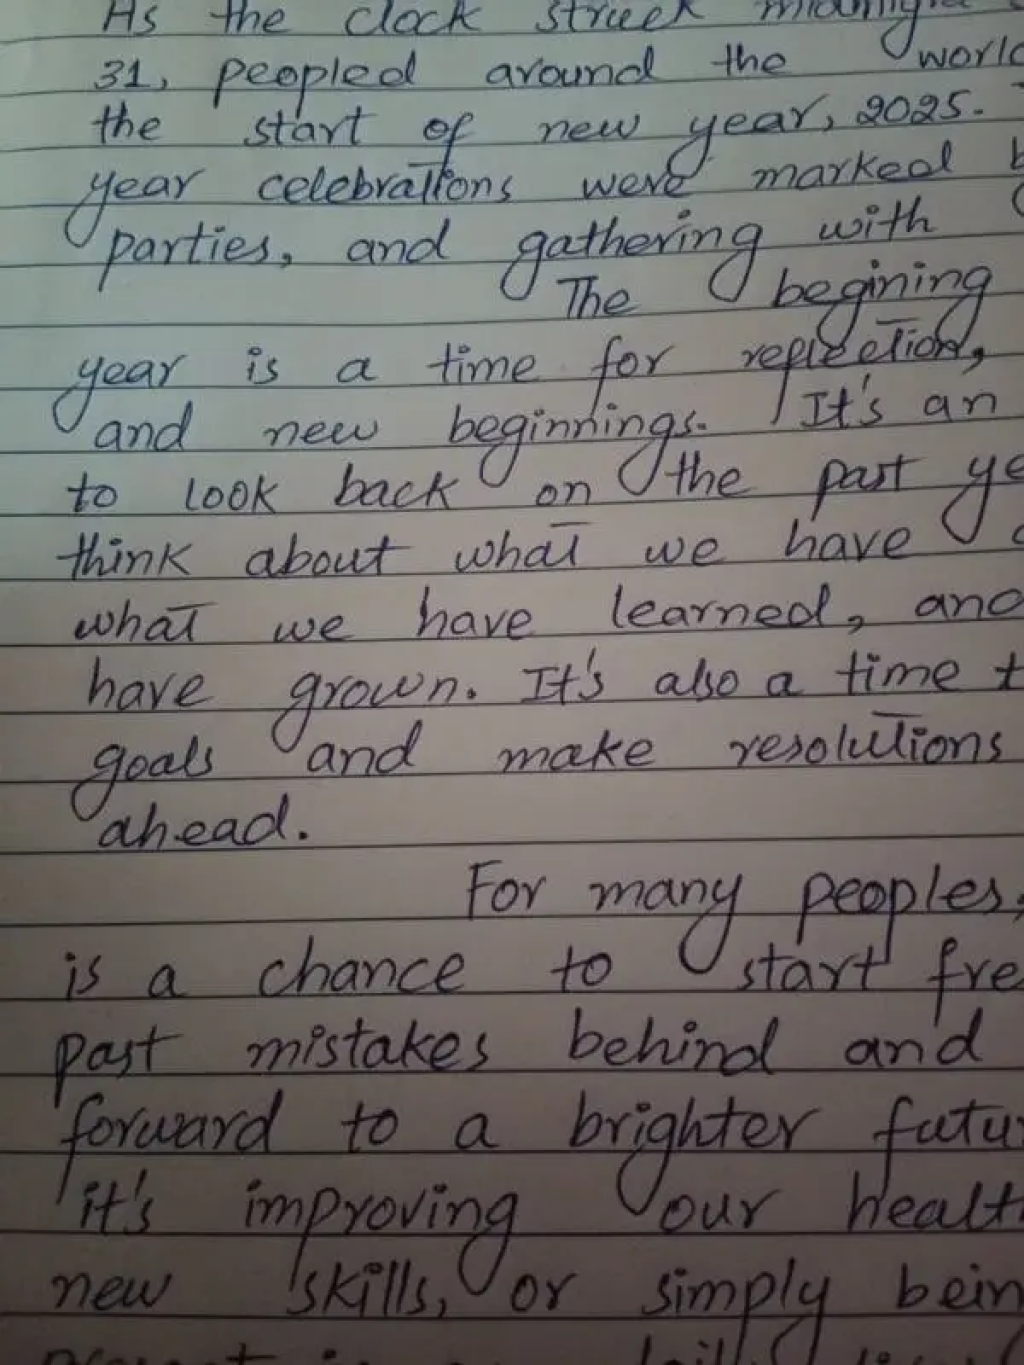 As the clock struck
31, peopled around the
the start of new year, 2025.
year celebrations were marked
parties, and gathering with
The begining
year is a time for reflection,
and new beginnings. It's an
to look back on the past
think about what we have
what we have learned,
have grown. It's also a time
goals and make resolutions
ahead.
For many peoples,
is a chance to start
past mistakes behind and
forward to a brighter
it's improving our
new skills, or simply